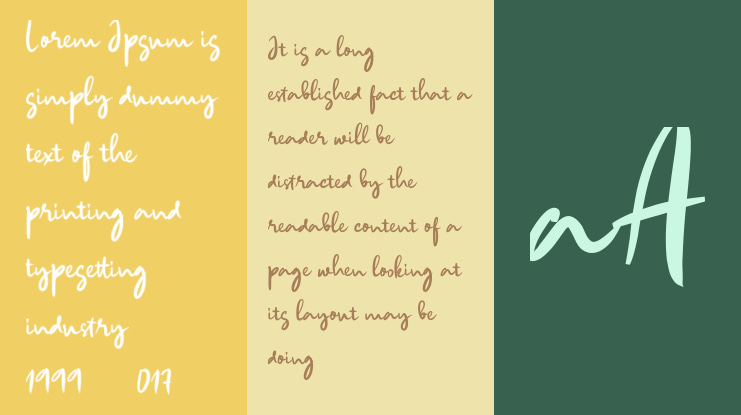 Lorem Ipsum is
simply dummy
text of the
printing and
typesetting
industry
1999 017
It is a long
established fact that a
reader will be
distracted by the
readable content of a
page when looking at
its layout may be
doing
aA